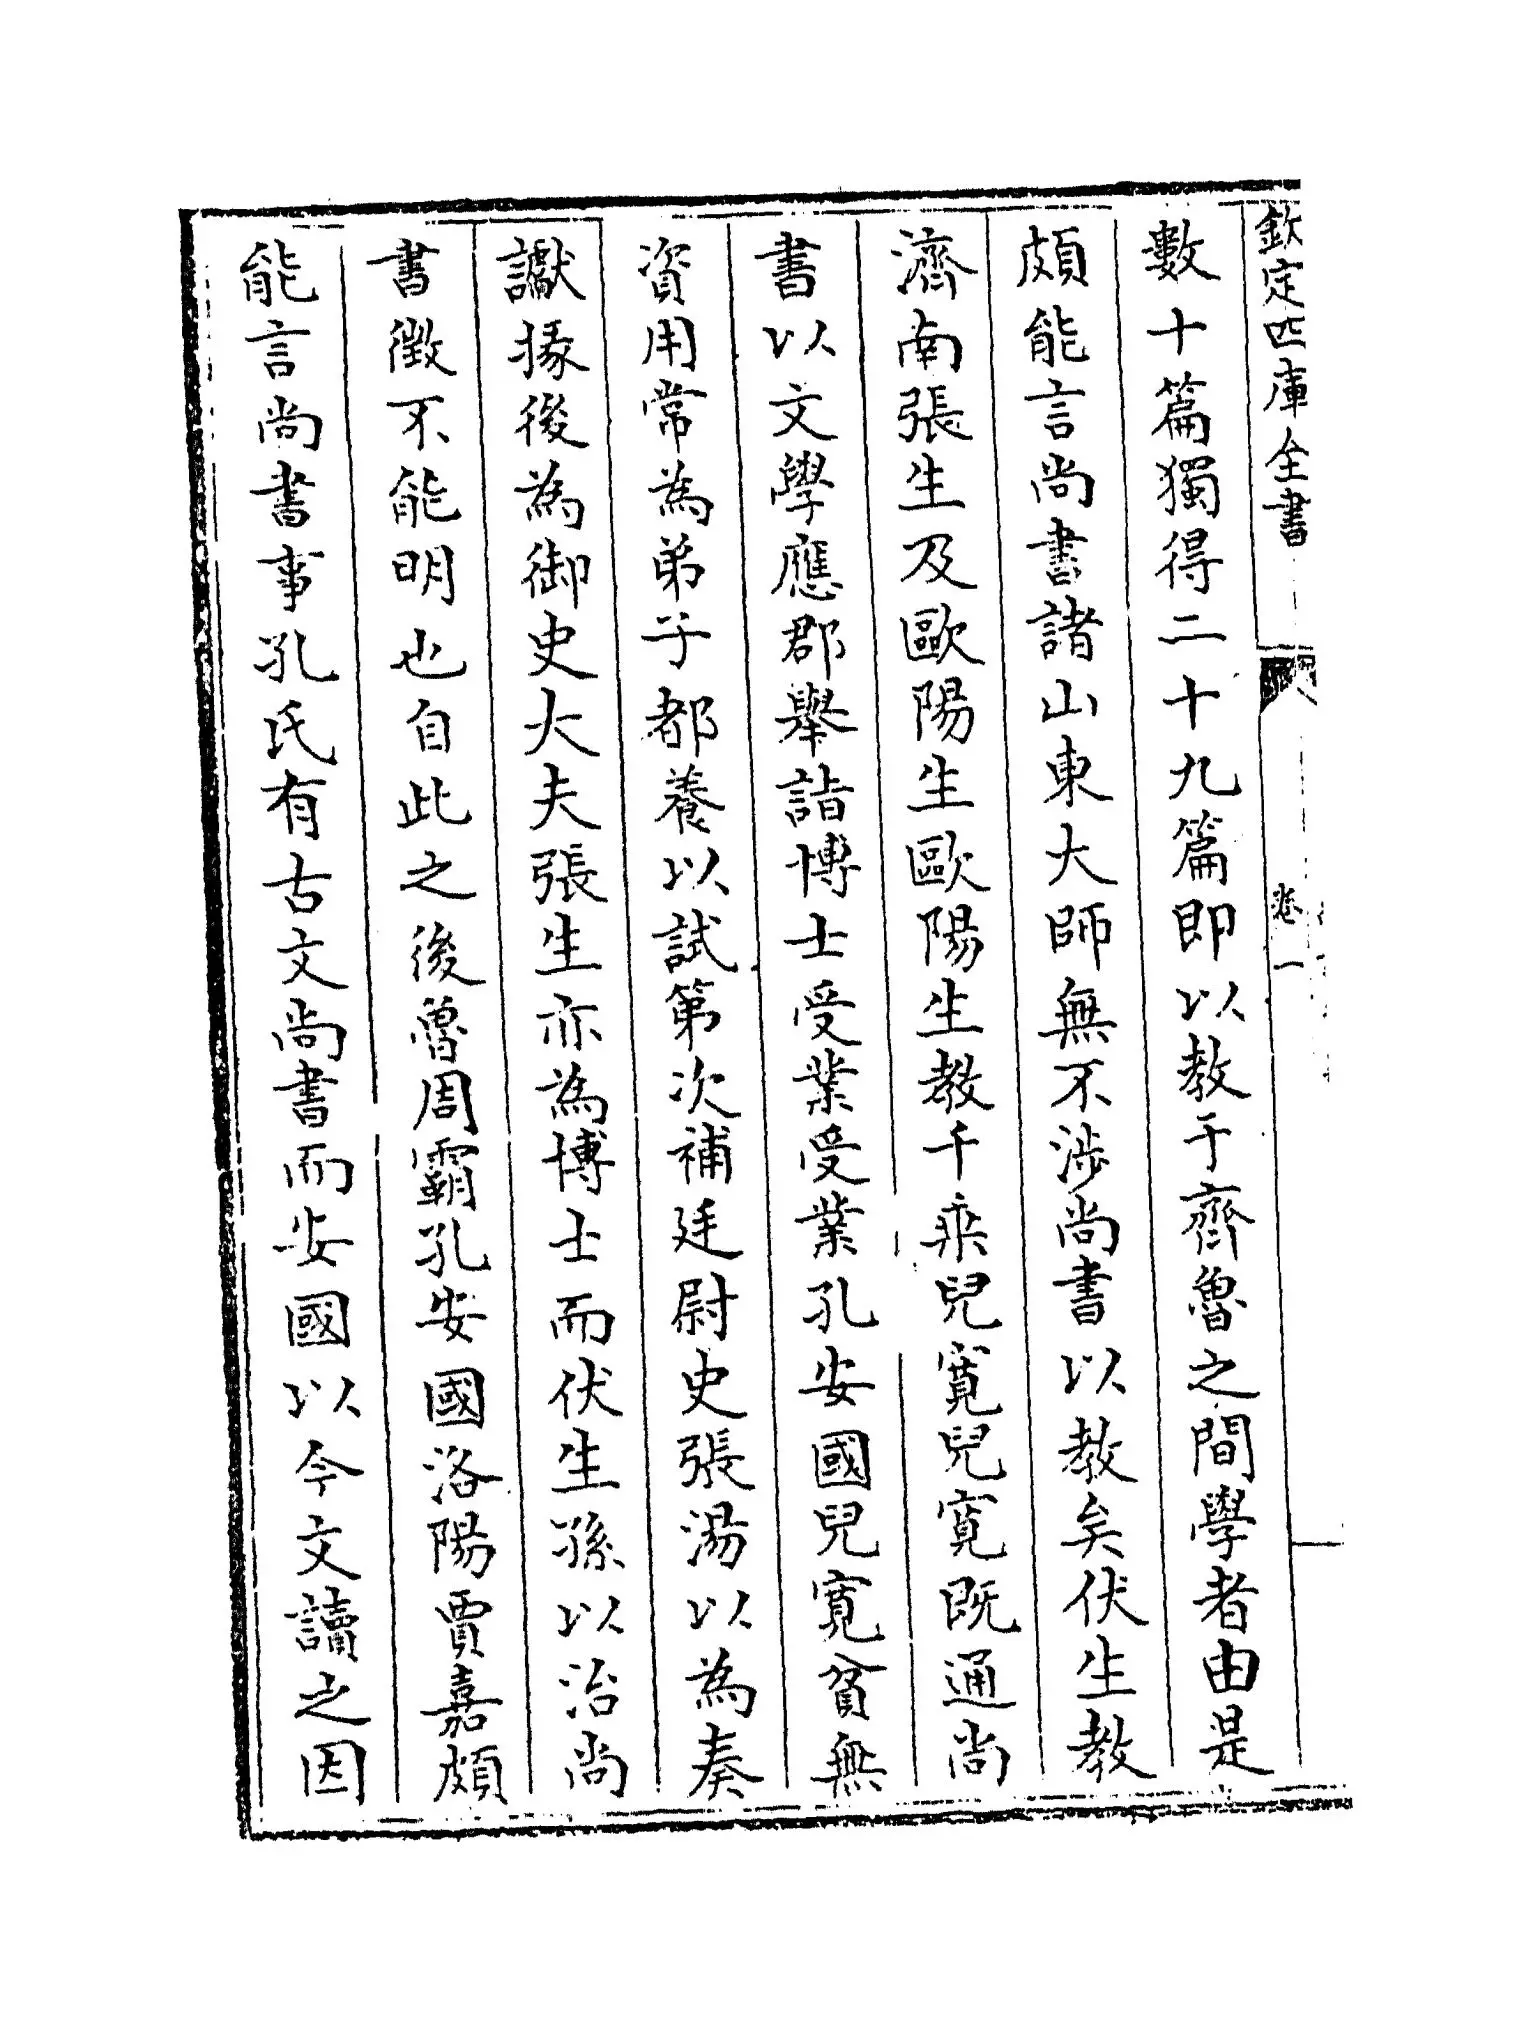 欽定四庫全書
卷一
數十篇獨得二十九篇即以教于齊魯之間學者由是
頗能言尚書諸山東大師無不涉尚書以教矣伏生教
濟南張生及歐陽生歐陽生教千乘兒寬兒寬既通尚
書以文學應郡舉詣博士受業受業孔安國兒寬貧無
資用常為弟子都養以試第次補廷尉史張湯以為奏
讞掾後為御史大夫張生亦為博士而伏生孫以治尚
書徵不能明也自此之後魯周霸孔安國洛陽賈嘉頗
能言尚書事孔氏有古文尚書而安國以今文讀之因